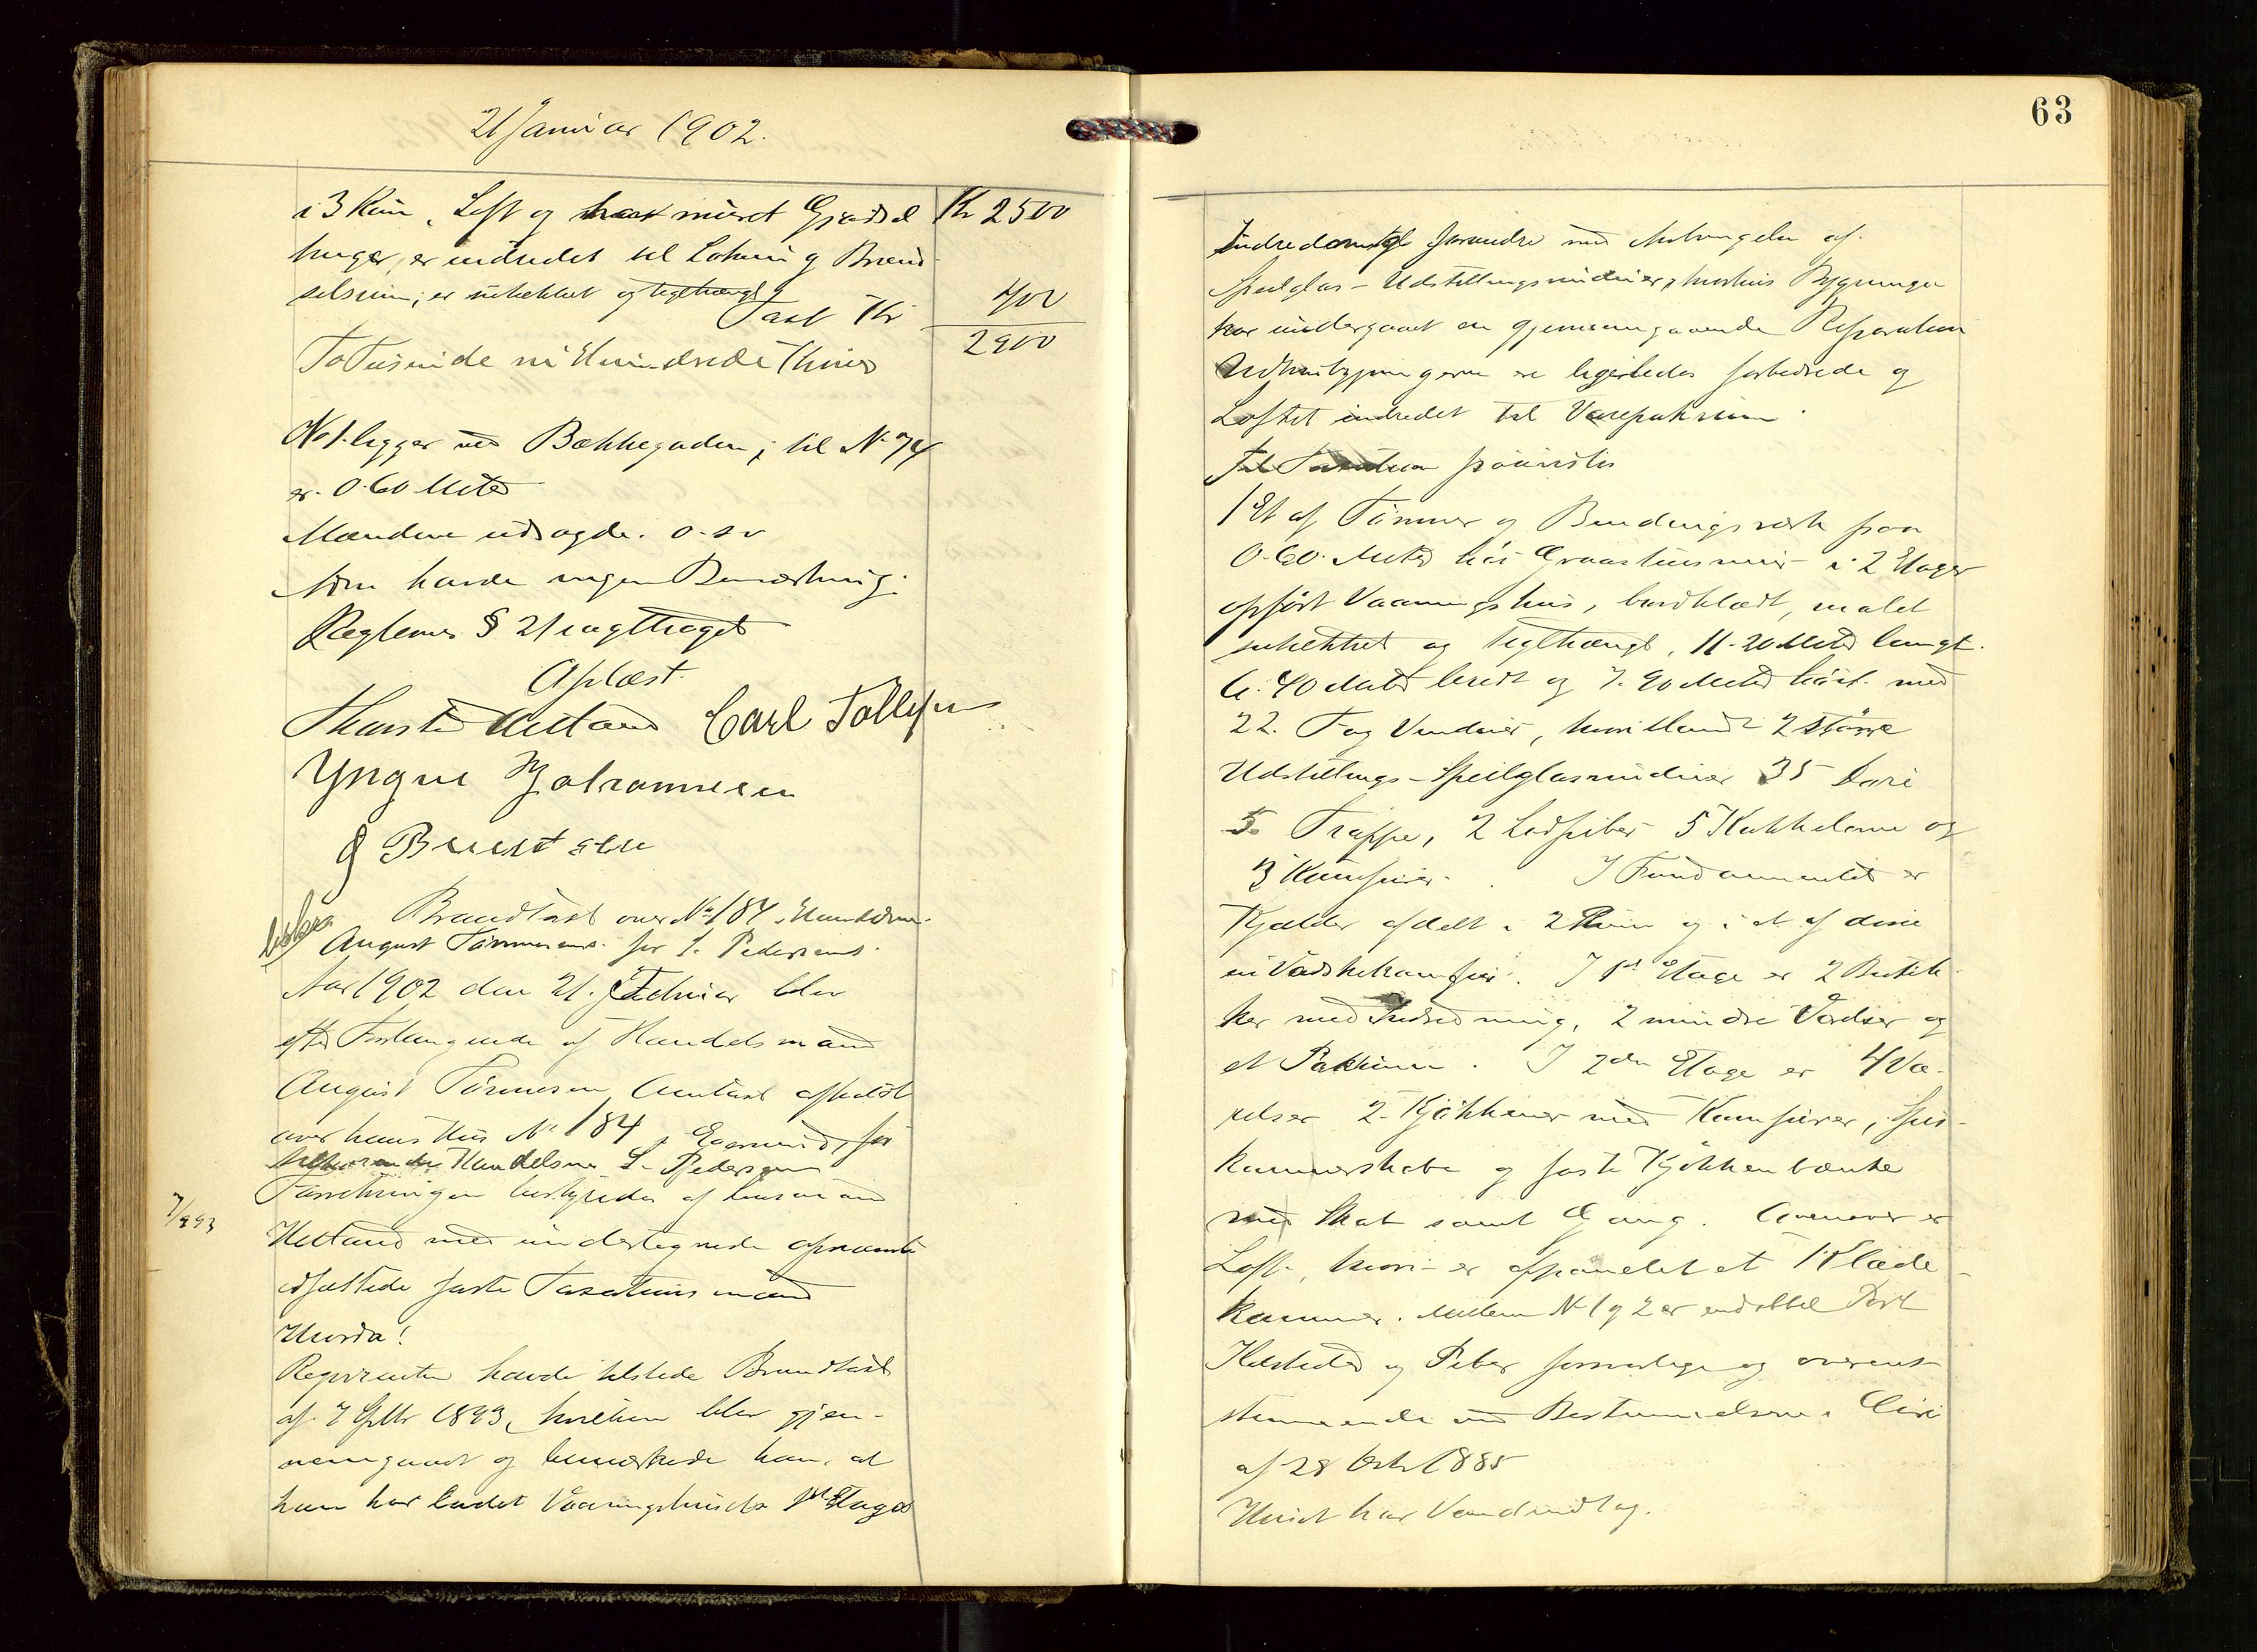 21 Januar 1902.
i 3 Rum, Loft og har muret Gjødsel Kr 2500
binger, er indredet til Lokum og Brænd
selsrum; er steklet og teglhængt 400
Taxt Kr 2900
To Tusinde ni Hundrede Kroner
No 1. ligger ved Bækkegaden; til No 74
er 0.60 Meter
Mændene udsagde o.s.v
havde ingen Bemærkning.
Reglemts § 21 iagttaget
Oplæst.
Carl Tollefsen
Yngve Johannesen
Brandtaxt over No 184,
August Tønnesens før S. Pedersens
Aar 1902 den 21. Februar blev
efter Forlangende af Handelsmand
August Tønnesen Omtaxt afholdt
over hans Hus No 184, Egersund, før
tilhørende Handelsm S. Pedersen
Forretningen bestyredes af Lensmand
7/993
Hetland med undertegnede opnævnte
edfæstede faste Taxationsmænd
Hvorda!
Repræsentanten havde tilstede Brandtaxt
af 7 Septbr 1893, hvilken blev gjen-
nemgaaet og bemærkede han, at
han har ladet Vaaningshusets 1st Etages
63
Indredning forandre med Anbringelse af
Speilglas-Udstillingsvinduer, hvorhos Bygningen
har undergaaet en gjennemgaaende Reparation
Udhusbygningerne ere ligeledes forbedrede og
Loftet indredet til Varepakrum.
Til Taxation paavistes
1 Et af Tømmer og Bindingsverk paa
0.60 Meter høi Graastensmur i 2 Etager
opført Vaaningshus, bordklædt, malet
steklet og teglhængt, 11.20 Meter langt
6.40 Meter bredt og 7.90 Meter høit med
22. Fag Vinduer, hvoriblandt 2 større
Udstillings-Speilglasvinduer 35 Døre
5 Trappe, 2 Lodpiber 5 Kakkelovne og
3 Komfurer. I Fundamentet er
Kjælder afdelt i 2 Rum og i et af disse
en Vadskekomfur. I 1st Etage er 2 Butik-
ker med Indredning, 2 mindre Værelser og
et Pakrum. I 2den Etage er 4 Væ-
relser 2 Kjøkkener med Komfurer, Spis-
kammerskabe og faste Kjøkkenbænke
med Skab samt Gang. Ovenover er
Loft, hvori er afpanelet et Klæde-
kammer. Mellem No 1 og 2 er Port
Ildsteder og Piber forsvarlige og overens-
stemmende med Bestemmelserne i Circ
af 28 Octr 1885
Huset har Vandindlæg.